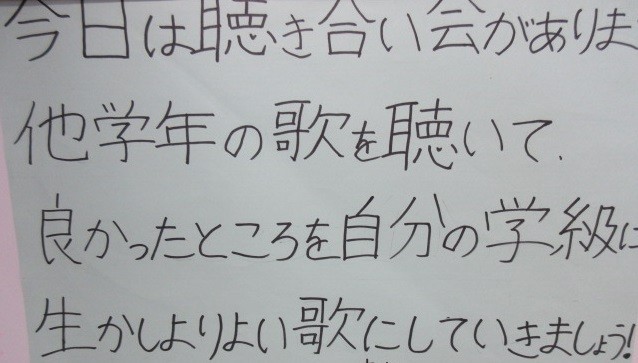 今日は聴き合い会がありま
他学年の歌を聴いて、
良かったところを自分の学級に
生かしよりよい歌にしていきましょう!